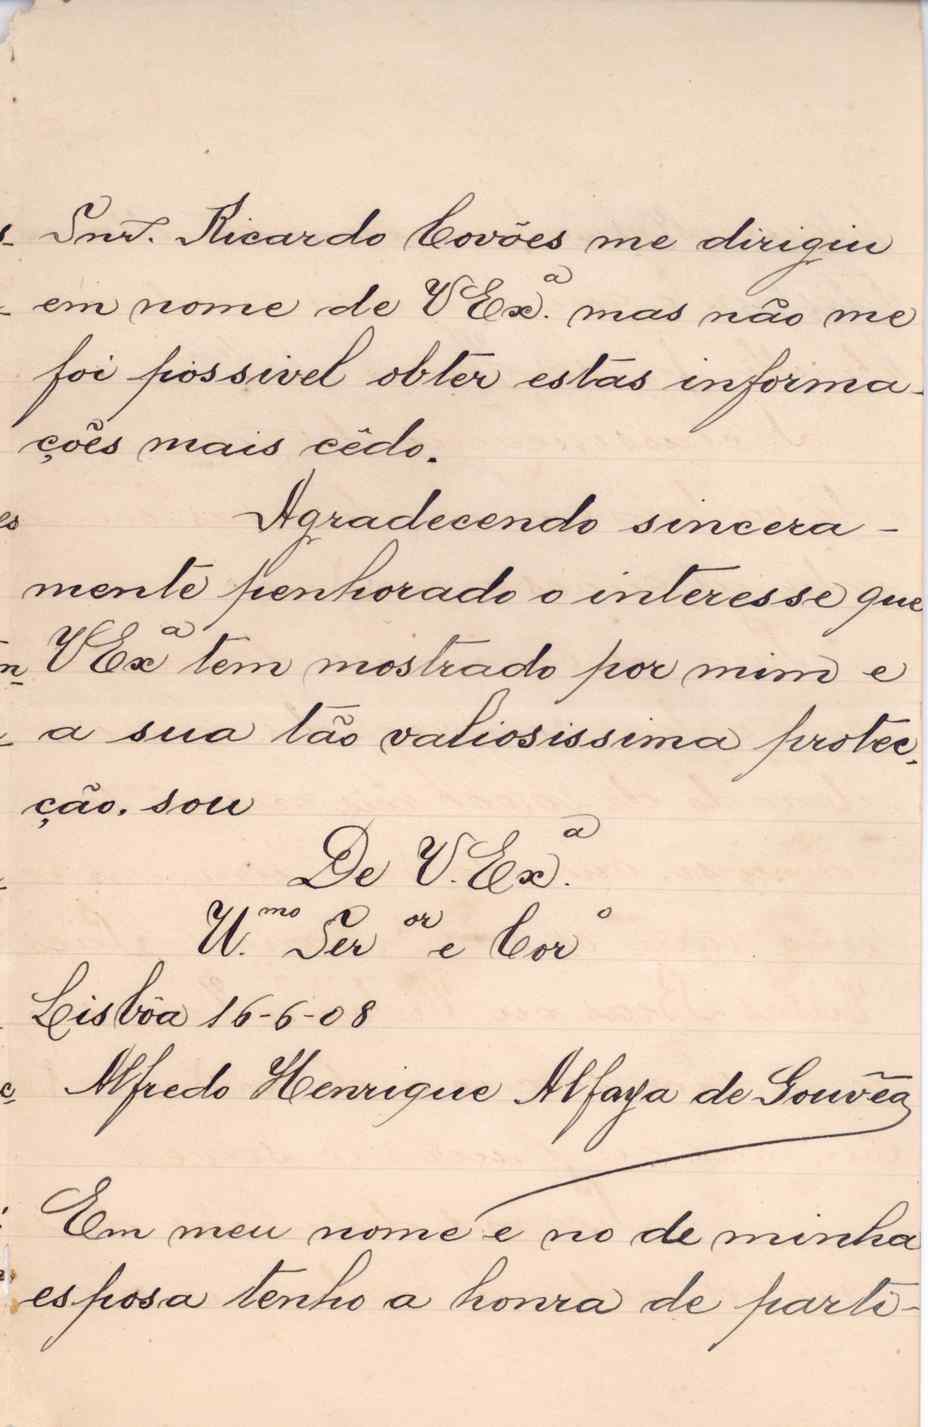 Snr. Ricardo Covões me dirigiu
em nome de V Ex.ª mas não me
foi possivel obter estas informa-
ções mais cêdo.
Agradecendo sincera-
mente penhorado o interesse que
V Exª tem mostrado por mim e
a sua tão valiosissima protec-
ção. sou
De V. Ex.ª
U.mo Ser or e Cor o
Lisbôa 16-6-08
Alfredo Henrique Alfaya de Gouvêa
Em meu nome e no de minha
esposa tenho a honra de parti-